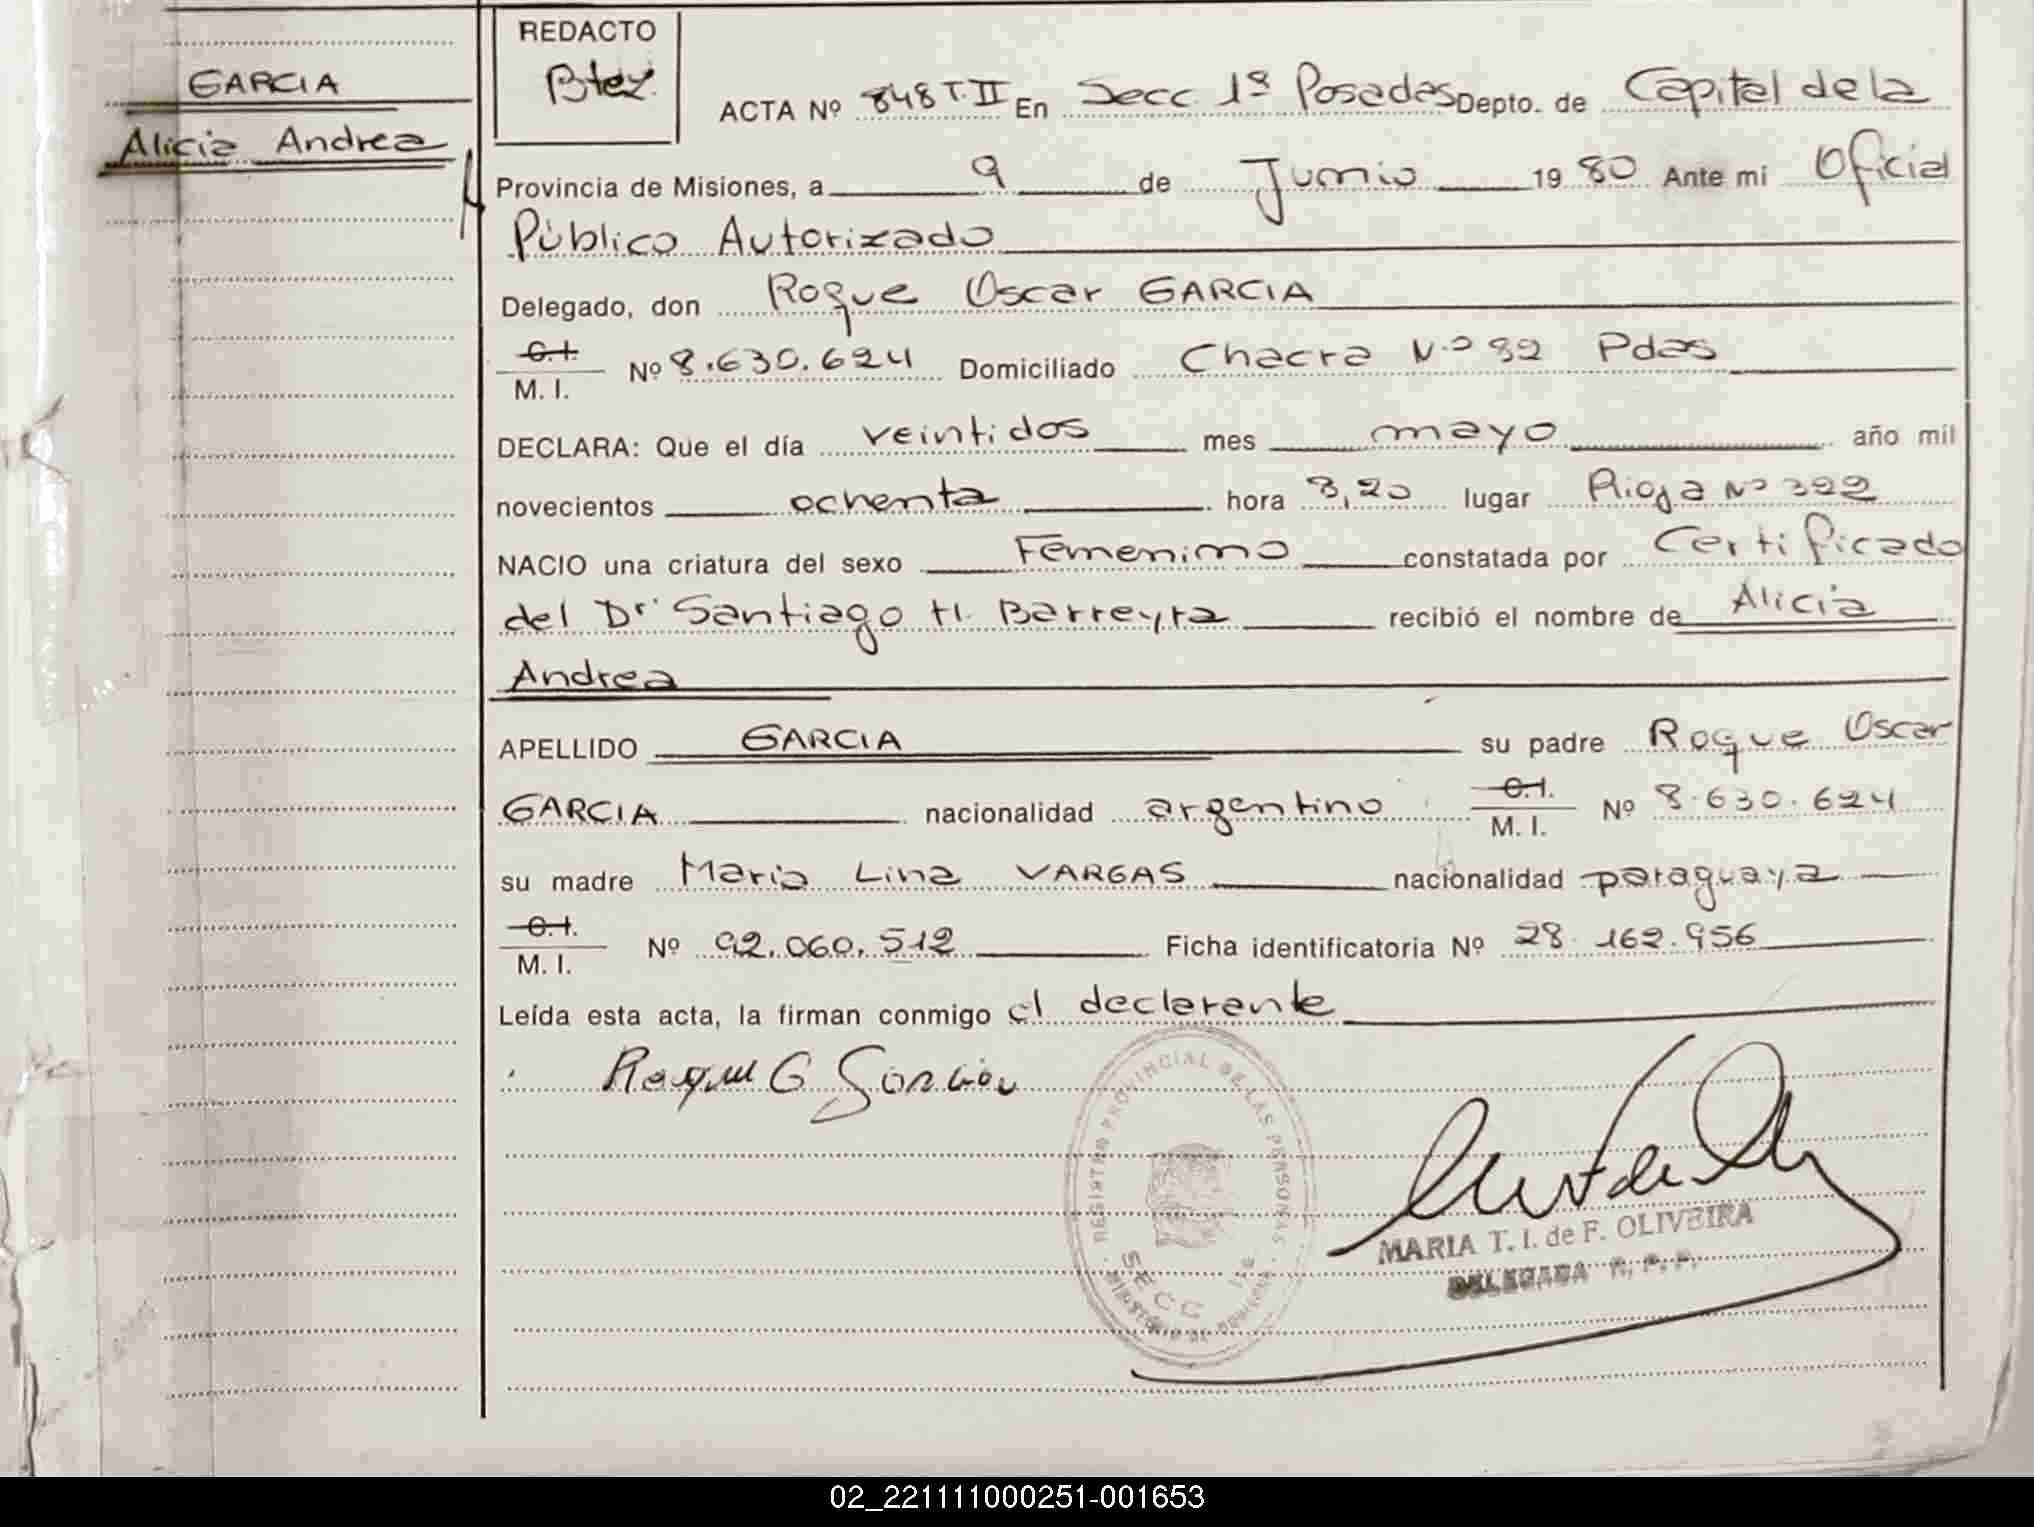 GARCIA
Alicia Andrea
REDACTO
Btez.
ACTA Nº 848 T.II En Secc. 1ª Posadas Depto. de Capital de la
Provincia de Misiones, a 9 de Junio 1980 Ante mi Oficial
Público Autorizado
Delegado, don Roque Oscar GARCIA
C.I.
M. I. Nº 8.630.624 Domiciliado Chacra Nº 82 Pdas
DECLARA: Que el día veintidos mes mayo año mil
novecientos ochenta hora 8,20 lugar Rioja Nº 322
NACIO una criatura del sexo Femenino constatada por Certificado
del Dr. Santiago H. Barreyra recibió el nombre de Alicia
Andrea
APELLIDO GARCIA su padre Roque Oscar
GARCIA nacionalidad argentino C.I. M. I. Nº 8.630.624
su madre Maria Lina VARGAS nacionalidad paraguaya
C.I.
M. I. Nº 92.060.512 Ficha identificatoria Nº 28.162.956
Leída esta acta, la firman conmigo el declarante
Roque O Garcia
REGISTRO PROVINCIAL DE LAS PERSONAS
SECC
MARIA T. I. de F. OLIVEIRA
DELEGADA R. P. P.
02_221111000251-001653